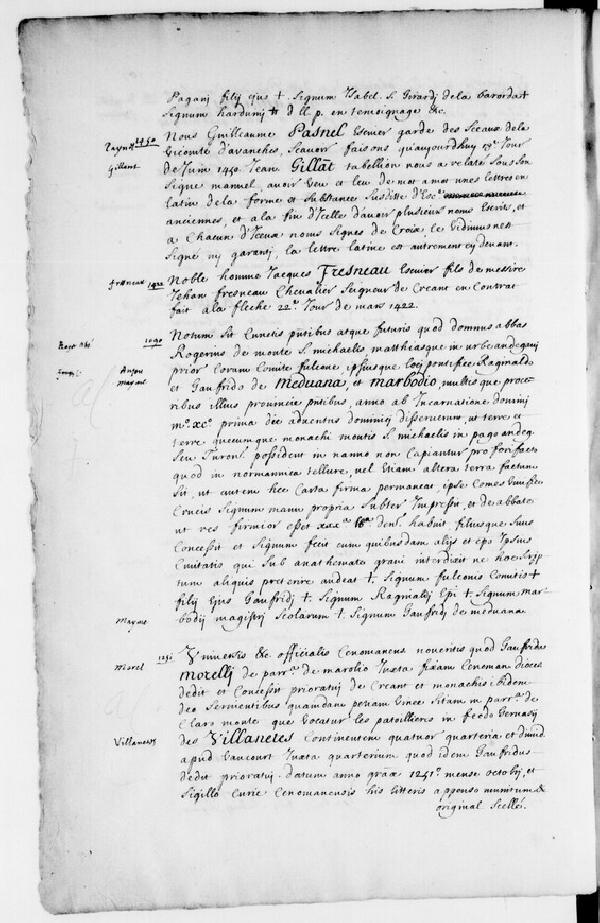 Pagani filij ejus + signum Isabel. S. Girardi de la
signum harduini + d ll. p. en temoignage &c.
1450
Gillant
Nous Guillaume Pasnel Escuier garde des Sceaux de la
Viconté d'avranches, scavoir faisons qu'aujourdhuy Jour
de Juin 1450 Jean Gillat tabellion nous a relaté soubs son
signe manuel, avoir veu et leu de mot a mot unes lettres en
latin de la forme et substance susditte
anciennes, et a la fin d'Icelle d'avoir plusieurs noms Escrits, et
a Chacun d'Iceux noms signes de Croix le Vidimus
signé ny garanti, la lettre latine est autrement cy devant.
fresneau 1422
Noble homme Jacques Fresneau Escuier fils de messire
Jehan fresneau Chevalier Seigneur de Creant en Contrat
fait a la fleche 22e. Jour de mars 1422.
1090
Notum sit Cunctis pntibus atque futuris quod domnus abbas
Anjou
Mayenne
Rogerius de monte S. michaelis, mattheusque in urbe andegavi
prior Coram Comite fulcone, ipsiusque loci pontifice Raginaldo
et Gaufrido de Meduana, et Marbodio, multisque proce-
ribus illius provincie pntibus, anno ab Incarnatione domini
m.o xc.o prima die adventus dominici disseruerunt, ut terre et
terre quecumque monachi montis S. michaelis in pago andeg.
seu Turon. possident in nanno non Capiantur pro forisfacto
quod in normannica tellure, vel Etiam altera terra factum
sit, ut autem hec Carta firma permaneat, ipse Comes
Crucis signum manu propria subter Impressit, et de abbate
ut res firmior esset xxx. den. habuit, filiusque suus
Concessit et signum fecit cum quibusdam alijs et epo Ipsius
Civitatis qui sub anathemate gravi interdixit ne hoc scrip-
tum aliquis preterire audeat +. signum fulconis Comitis +
filij Ejus Gaufridi +. signum Raginaldi Epi +. signum Mar-
Mayne
bodij magistri scolarum +. signum Gaufridi de meduana.
Morel 1251
Universis &c. officialis Cenomanens noveritis quod Gaufridus
Morelli de parr.a de marolio Juxta Cenoman. dioces.
dedit et Concessit prioratui de Creant et monachis ibidem
deo servientibus quamdam petiam Vinee sitam in parr.a de
Claro monte que vocatur les patoillieres in feodo Gervasij
Villanetes
des Villanetes Continentem quatuor quarteria et dimid.
apud Vaucourt Juxta quarterium quod idem Gaufridus
dedit prioratui. datum anno grãe 1251.o mense octobrj, et
sigillo Curie Cenomanensis his litteris apponso munitum &
original scellé.